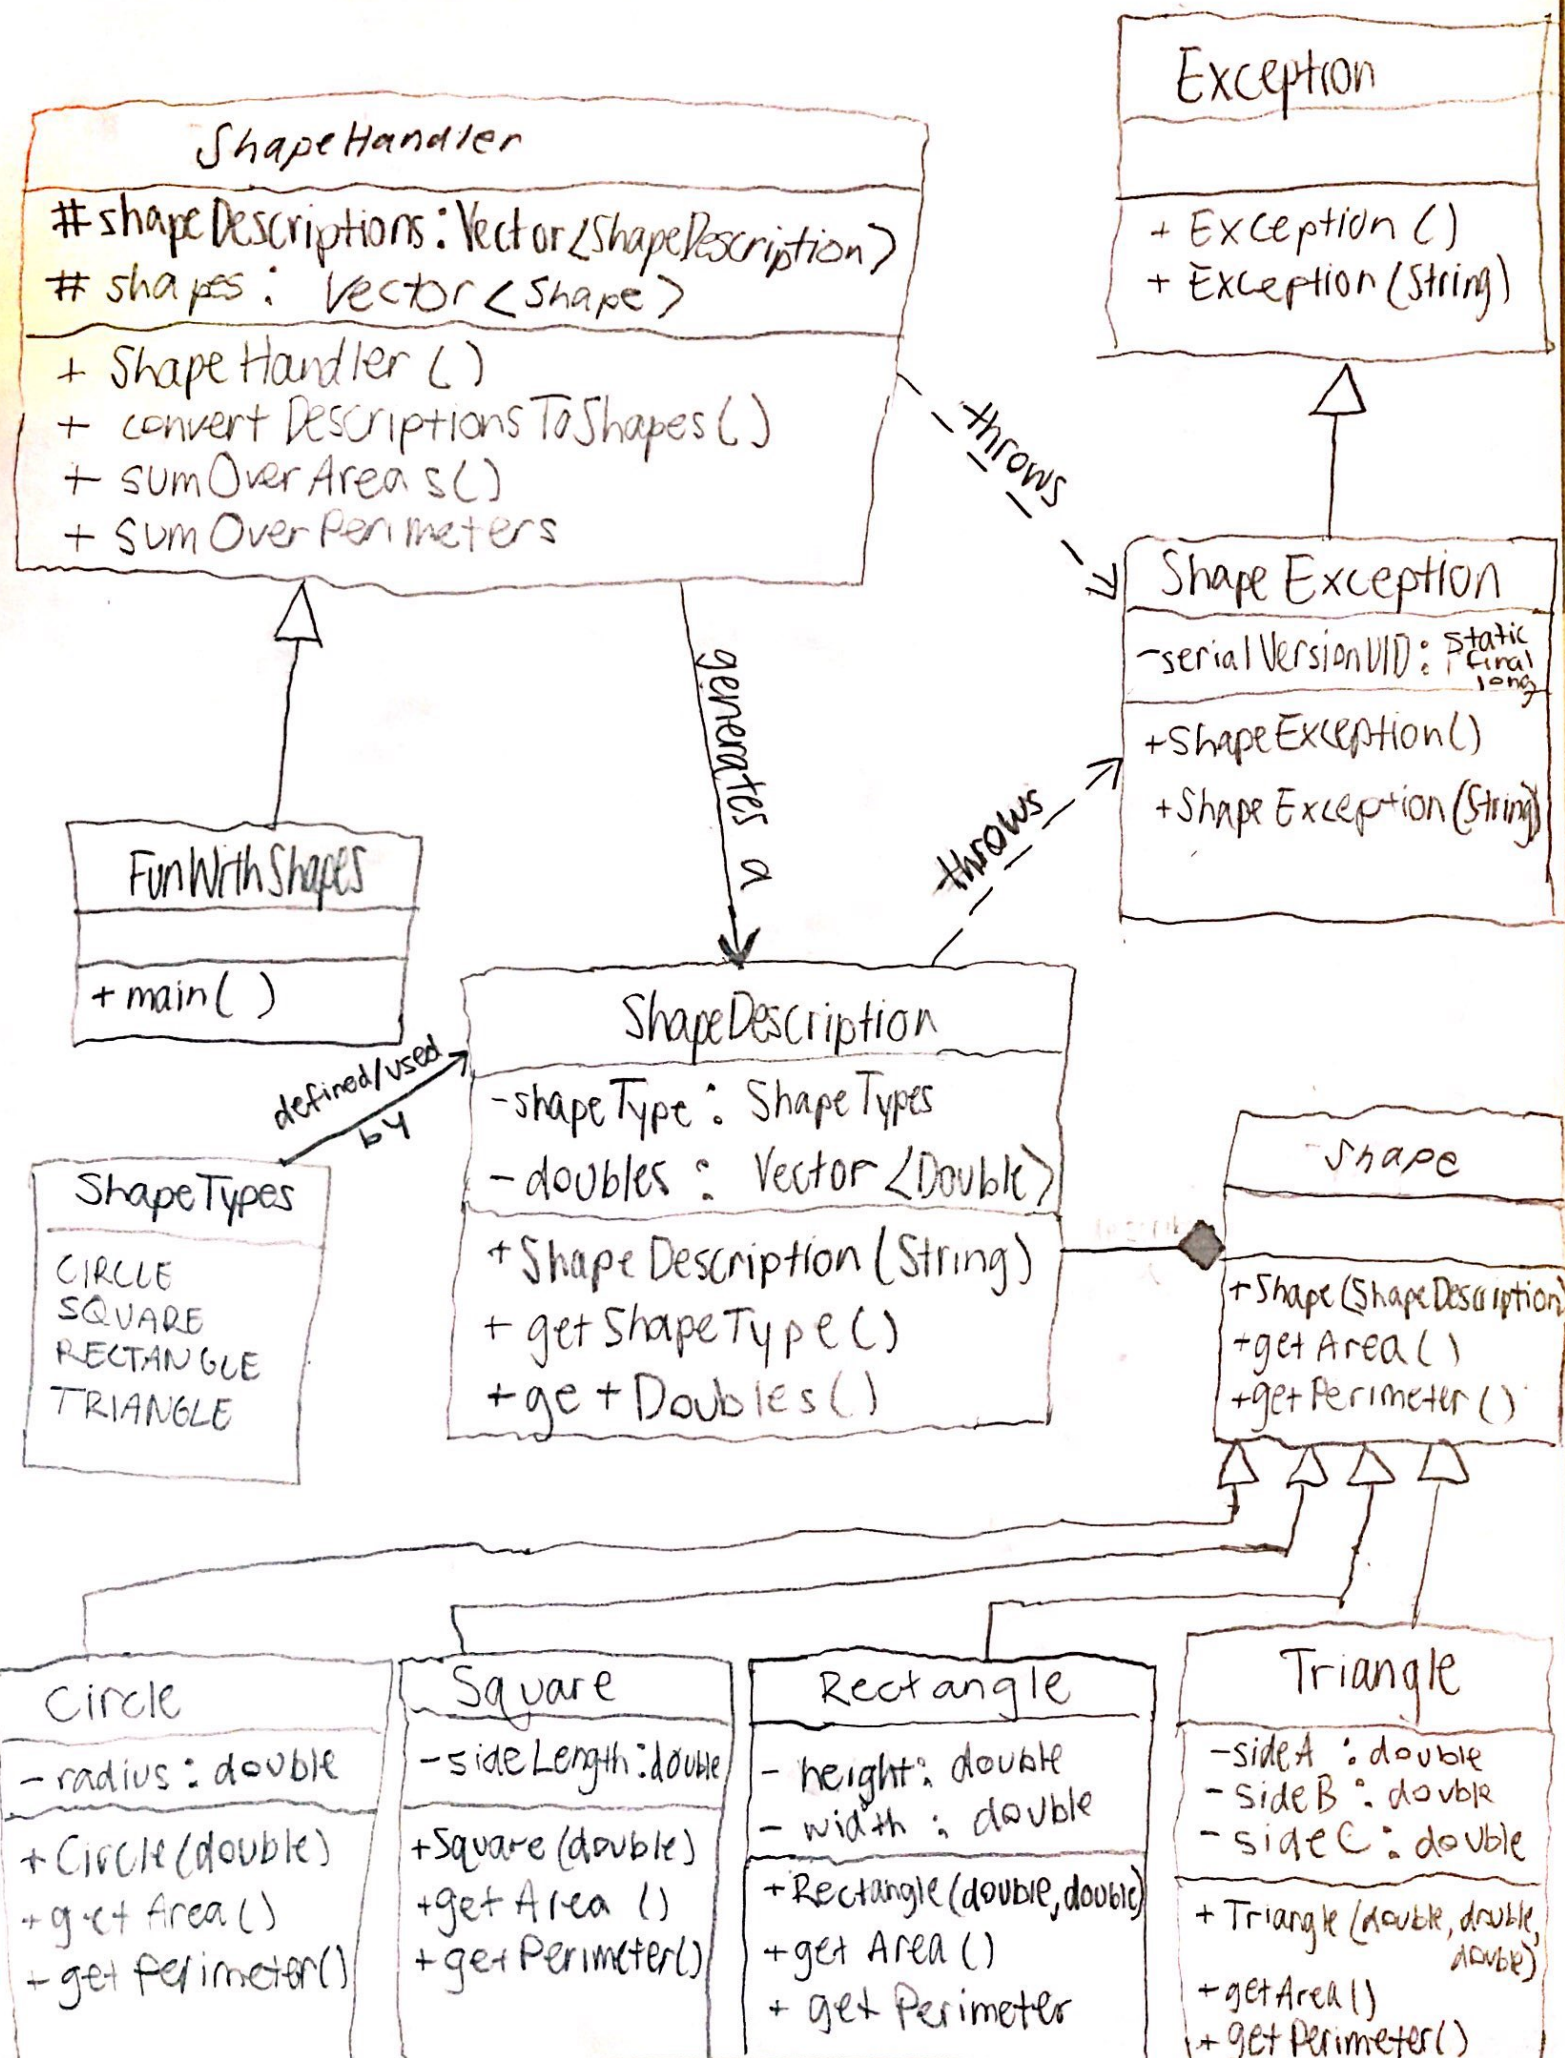 Exception
+ Exception()
+ Exception(String)
ShapeHandler
# shapeDescriptions: Vector<ShapeDescription>
# shapes: Vector<Shape>
+ ShapeHandler()
+ convertDescriptionsToShapes()
+ sumOverAreas()
+ sumOverPerimeters
throws
ShapeException
-serialVersionUID: static
final
long
+ShapeException()
+ShapeException(String)
generates a
throws
FunWithShapes
+main()
defined/used
by
ShapeDescription
-shapeType: ShapeTypes
-doubles: Vector<Double>
+ShapeDescription(String)
+getShapeType()
+getDoubles()
ShapeTypes
CIRCLE
SQUARE
RECTANGLE
TRIANGLE
Shape
+Shape(ShapeDescription)
+getArea()
+getPerimeter()
Circle
-radius: double
+Circle(double)
+getArea()
+getPerimeter()
Square
-sideLength: double
+Square(double)
+getArea()
+getPerimeter()
Rectangle
- height: double
- width: double
+Rectangle(double, double)
+getArea()
+ getPerimeter
Triangle
-sideA: double
-sideB: double
-sideC: double
+ Triangle(double, double,
double)
+getArea()
+getPerimeter()